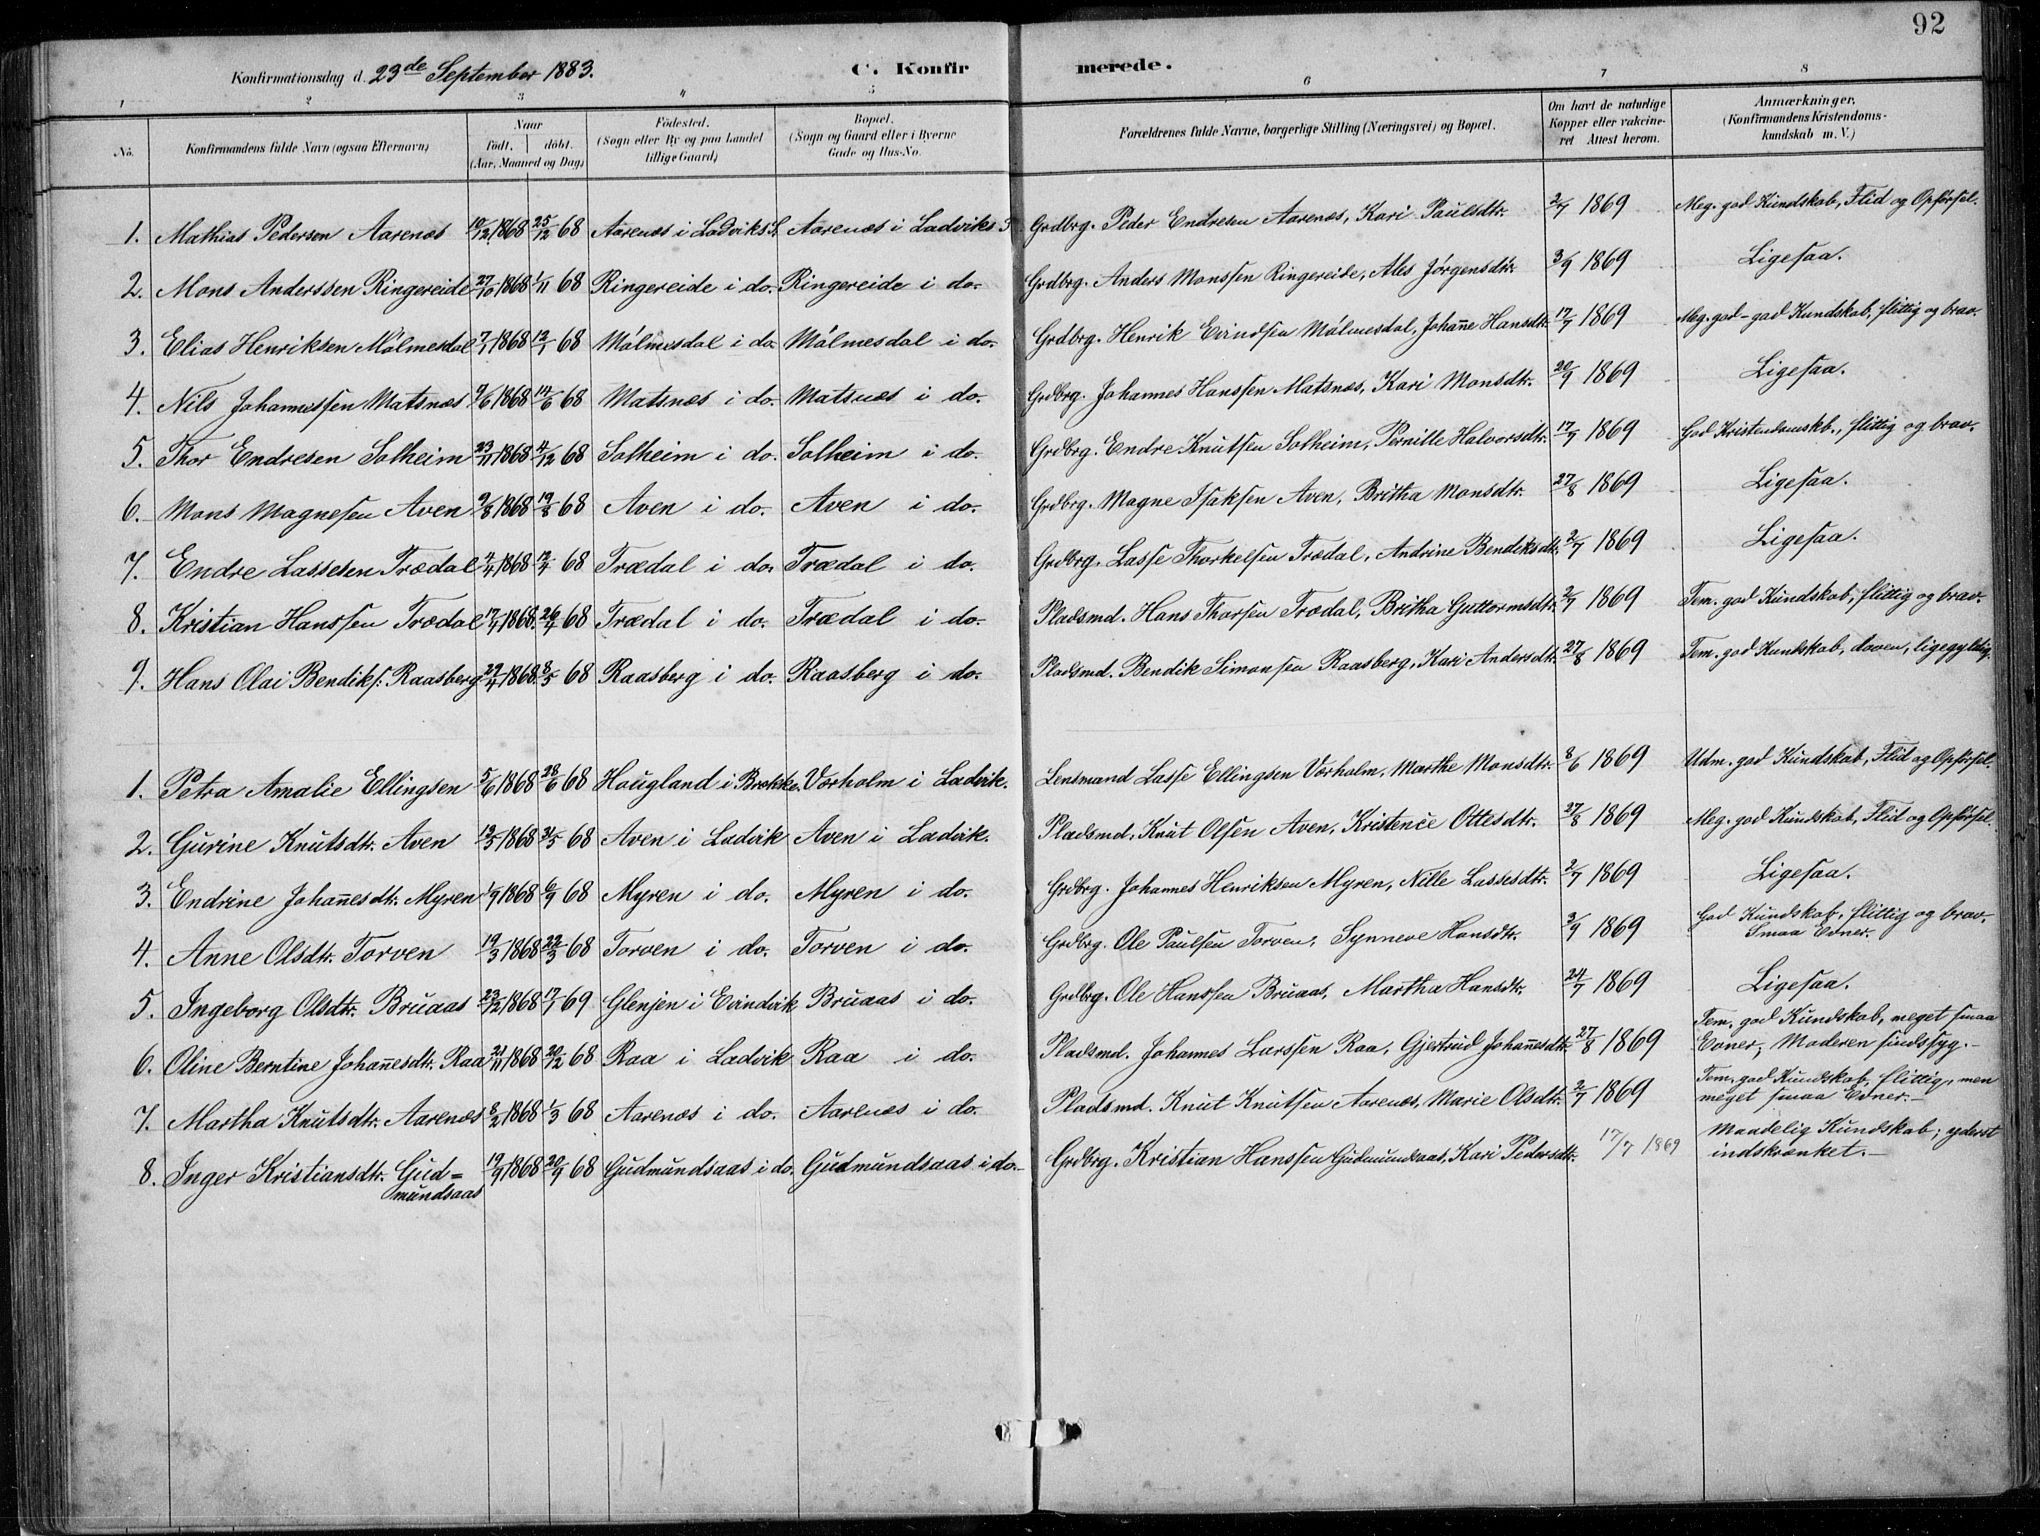 92
Konfirmationsdag d. 23de September 1883. C. Konfirmerede.
1 2 3 4 5 6 7 8
No. Konfirmandens fulde Navn (ogsaa Efternavn) Naar födt. döbt. (Aar, Maaned og Dag) Födested. (Sogn eller By og paa Landet tillige Gaard) Bopæl. (Sogn og Gaard eller i Byerne Gade og Hus-No. Forældrenes fulde Navne, borgerlige Stilling (Næringsvei) og Bopæl. Om havt de naturlige Kopper eller vakcineret Attest herom. Anmærkninger. (Konfirmandens Kristendomskundskab m. V.)
1. Mathias Pedersen Aarenæs 10/12 1868 25/12 68 Aarenæs i Ladviks S. Aarenæs i Ladviks S Grdbrg. Peder Endresen Aarenæs, Kari Paulsdtr. 2/7 1869 Meg. god Kundskab, Flid og Opförsel.
2. Mons Anderssen Ringereide 27/10 1868 1/11 68 Ringereide i do. Ringereide i do. Grdbrg. Anders Monssen Ringereide, Ales Jörgensdtr. 3/9 1869 Ligesaa.
3. Elias Henriksen Mölmesdal 7/1 1868 12/1 68 Mölmesdal i do. Mölmesdal i do. Grdbrg. Henrik Evindsen Mölmesdal, Johanne Hansdtr. 17/7 1869 Meg. god - god Kundskab, flittig og brav.
4. Nils Johannessen Matsnæs 9/6 1868 14/6 68 Matsnæs i do. Matsnæs i do. Grdbrg. Johannes Hanssen Matsnæs, Kari Monsdtr. 20/9 1869 Ligesaa.
5. Thor Endresen Solheim 23/11 1868 4/12 68 Solheim i do. Solheim i do. Grdbrg. Endre Knutsen Solheim, Pernille Halvorsdtr. 17/7 1869 God Kristendomskb., flittig og brav.
6. Mons Magnesen Aven 9/8 1868 19/8 68 Aven i do. Aven i do. Grdbrg. Magne Isaksen Aven, Britha Monsdtr. 27/8 1869 Ligesaa.
7. Endre Lassesen Trædal 4/4 1868 12/4 68 Trædal i do. Trædal i do. Grdbrg. Lasse Thorkelsen Trædal, Andrine Bendiksdtr. 2/7 1869 Ligesaa.
8. Kristian Hanssen Trædal 17/4 1868. 26/4 68 Trædal i do. Trædal i do. Pladsmd. Hans Thorsen Trædal, Britha Guttormsdtr. 2/7 1869 Tem. god Kundskab, flittig og brav.
9. Hans Olai Bendiks. Raasberg 29/4 1868. 8/5 68 Raasberg i do. Raasberg i do. Pladsmd. Bendik Simonsen Raasberg, Kari Andersdtr. 27/8 1869 Tem. god Kundskab, doven, ligegyldig.
1. Petra Amalie Ellingsen 5/6 1868 28/6 68 Hougland i Brekke. Vorholm i Ladvik. Lensmand Lasse Ellingsen Vorholm, Marthe Monsdtr. 8/6 1869 Udm. god Kundskab, Flid og Opförsel.
2. Gurine Knutsdtr. Aven 12/5 1868 21/5 68 Aven i Ladvik Aven i Ladvik. Pladsmd. Knut Olsen Aven, Kristence Ottesdtr. 27/8 1869 Meg. god Kundskab, Flid og Opförsel.
3. Endrine Johannesdtr. Myren 1/9 1868 6/9 68 Myren i do. Myren i do. Grdbrg. Johannes Henriksen Myren, Nille Lassesdtr. 2/7 1869 Ligesaa.
4. Anne Olsdtr. Torven 19/3 1868 22/3 68 Torven i do. Torven i do. Grdbrg. Ole Paulsen Torven, Synneve Hansdtr. 3/9 1869 God Kundskab, flittig og brav. Smaa Evner.
5. Ingeborg Olsdtr. Bruaas 23/12 1868 17/1 69 Glenjen i Evindvik Bruaas i do. Grdbrg. Ole Hanssen Bruaas, Martha Hansdtr. 24/7 1869 Ligesaa.
6. Oline Berntine Johannesdtr. Raa 21/11 1868 20/12 68 Raa i Ladvik Raa i do. Pladsmd. Johannes Larssen Raa, Gjertrud Johannesdtr. 27/8 1869 Tem. god Kundskab, meget smaa Evner; Moderen sindssyg.
7. Martha Knutsdtr. Aarenæs 8/2 1868 1/3 68 Aarenæs i do. Aarenæs i do. Pladsmd. Knut Knutsen Aarenæs, Marie Olsdtr. 2/7 1869 Tem. god Kundskab, flittig, men meget smaa Evner.
8. Inger Kristiansdtr. Gud=mundsaas 19/9 1868 20/9 68 Gudmundsaas i do. Gudmundsaas i do. Grdbrg. Kristian Hanssen Gudmundsaas, Kari Pedersdtr. 17/7 1869 Maadelig Kundskab; yderst indskrænket.